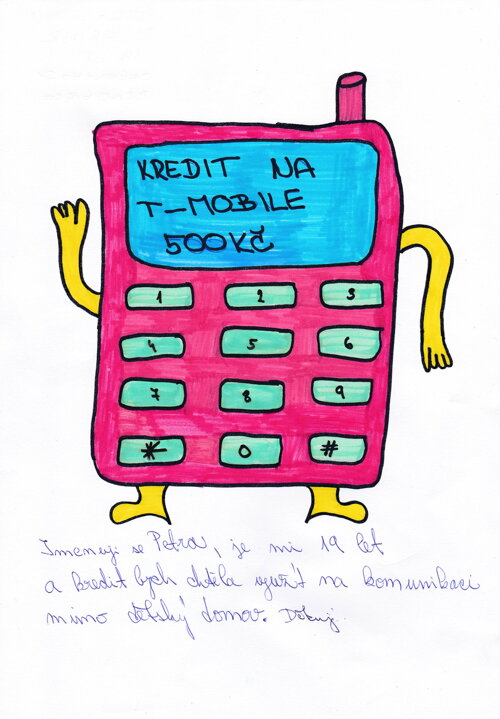 KREDIT NA
T-MOBILE
500KČ
1 2 3
4 5 6
7 8 9
* 0 #
Jmenuji se Petra, je mi 19 let
a kredit bych chtěla využít na komunikaci
mimo dětský domov. Děkuji